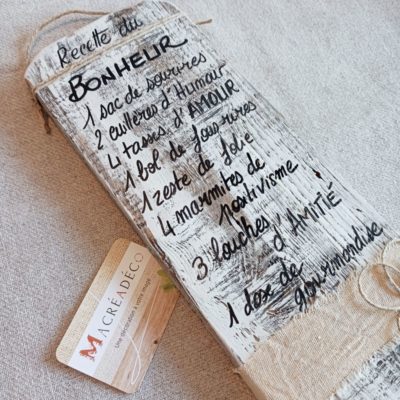 Recette du
BONHEUR
1 sac de sourires
2 cuillères d'Humour
4 tasses d'AMOUR
1 bol de fous rires
1 zeste de folie
4 marmites de
positivisme
3 louches
d'AMITIÉ
1 dose de
gourmandise
MACRÉADÉCO
Une décoration à votre image